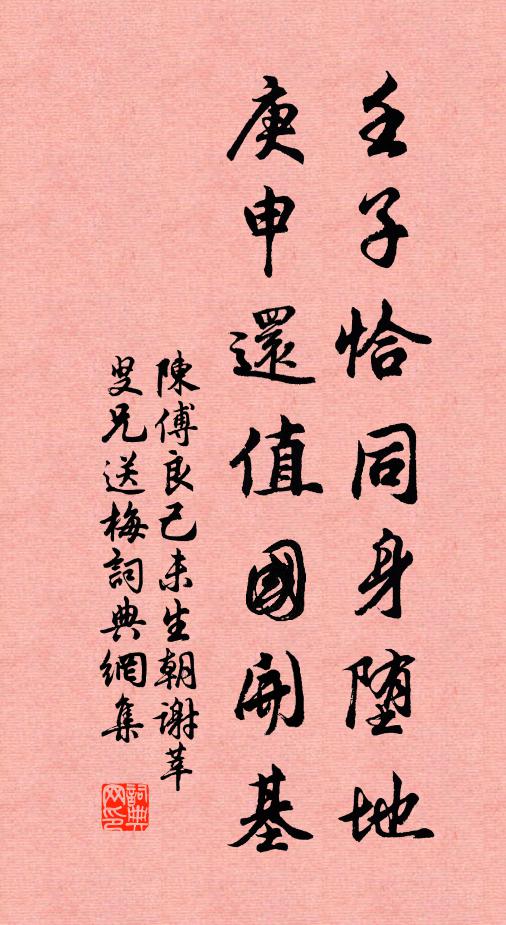 壬子恰同身堕地
庚申還值國開基
陳傅良己未生朝謝莘
叟兄送梅詞典網集
詞典
网印